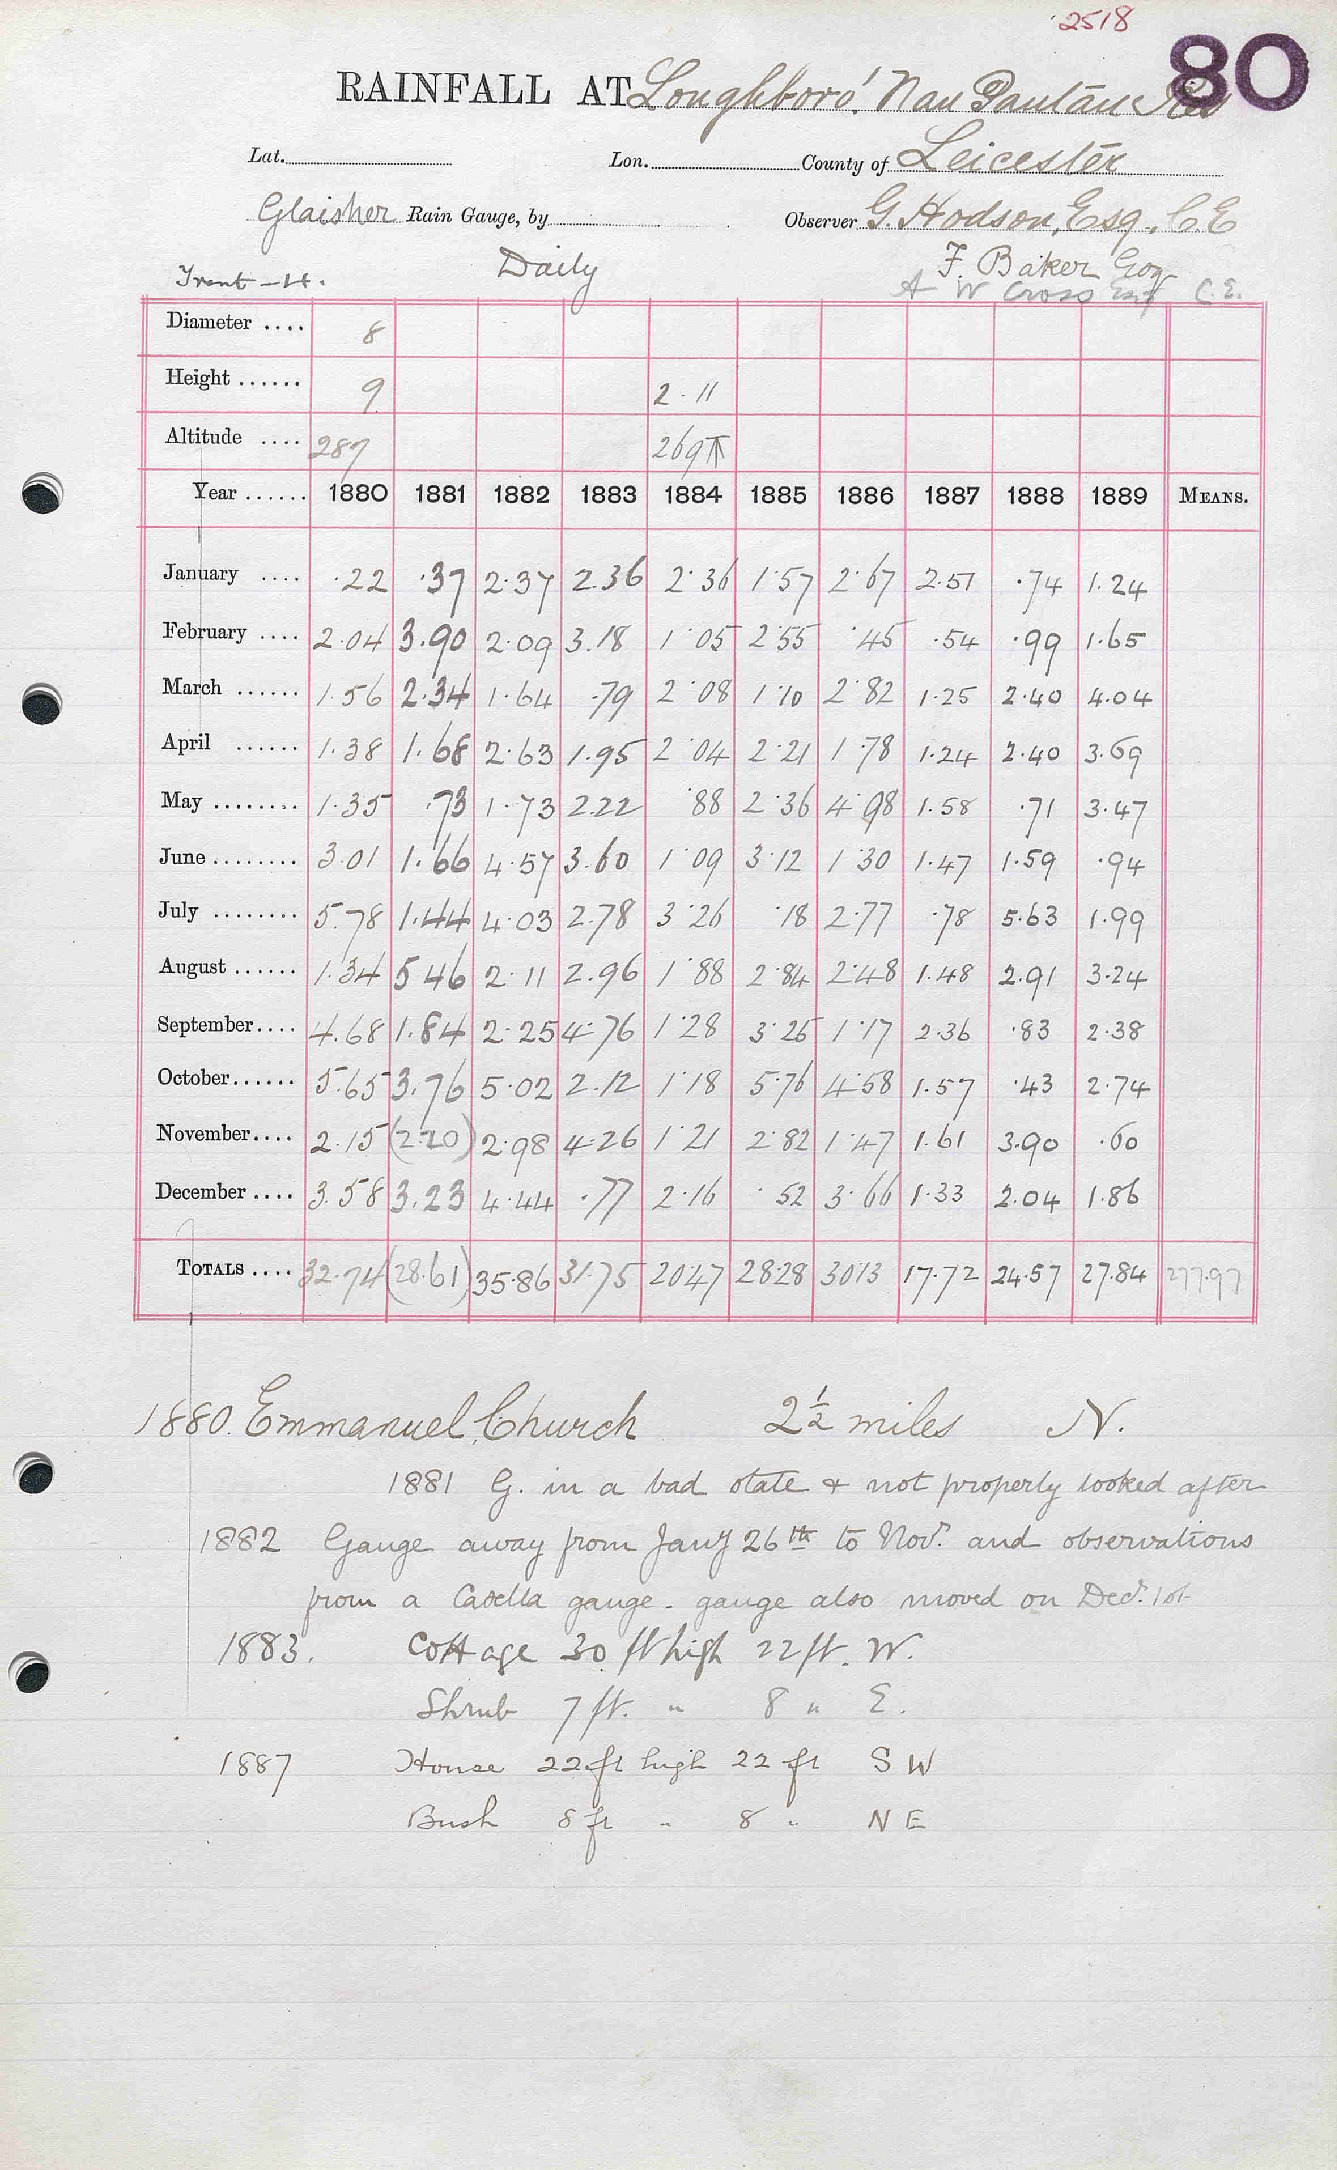 2518
80
RAINFALL AT Loughboro' Nan Pantan Res
Lat. Lon. County of Leicester
Glaisher Rain Gauge, by Observer G. Hodson, Esq., C.E
Daily F. Baker Esq
Trent — H. A W Cross Esq C.E.
Diameter .... 8
Height ...... 9 2.11
Altitude .... 287 269
Year ...... 1880 1881 1882 1883 1884 1885 1886 1887 1888 1889 MEANS.
January .... .22 .37 2.37 2.36 2.36 1.57 2.67 2.51 .74 1.24
February .... 2.04 3.90 2.09 3.18 1.05 2.55 .45 .54 .99 1.65
March ...... 1.56 2.34 1.64 .79 2.08 1.10 2.82 1.25 2.40 4.04
April ...... 1.38 1.68 2.63 1.95 2.04 2.21 1.78 1.24 2.40 3.69
May ........ 1.35 .73 1.73 2.22 .88 2.36 4.98 1.58 .71 3.47
June ........ 3.01 1.66 4.57 3.60 1.09 3.12 1.30 1.47 1.59 .94
July ........ 5.78 1.44 4.03 2.78 3.26 .18 2.77 .78 5.63 1.99
August ...... 1.34 5.46 2.11 2.96 1.88 2.84 2.48 1.48 2.91 3.24
September .... 4.68 1.84 2.25 4.76 1.28 3.25 1.17 2.36 .83 2.38
October ...... 5.65 3.76 5.02 2.12 1.18 5.76 4.58 1.57 .43 2.74
November .... 2.15 (2.20) 2.98 4.26 1.21 2.82 1.47 1.61 3.90 .60
December .... 3.58 3.23 4.44 .77 2.16 .52 3.66 1.33 2.04 1.86
TOTALS .... 32.74 (28.61) 35.86 31.75 20.47 28.28 30.13 17.72 24.57 27.84 277.97
1880. Emmanuel Church 2½ miles N.
1881 G. in a bad state & not properly looked after
1882 Gauge away from Jany 26th to Novr. and observations
from a Casella gauge - gauge also moved on Decr. 1st
1883. Cottage 30 ft high 22 ft. W.
Shrub 7 ft. " 8 " E.
1887 House 22 ft high 22 ft S W
Bush 8 ft " 8 " N E